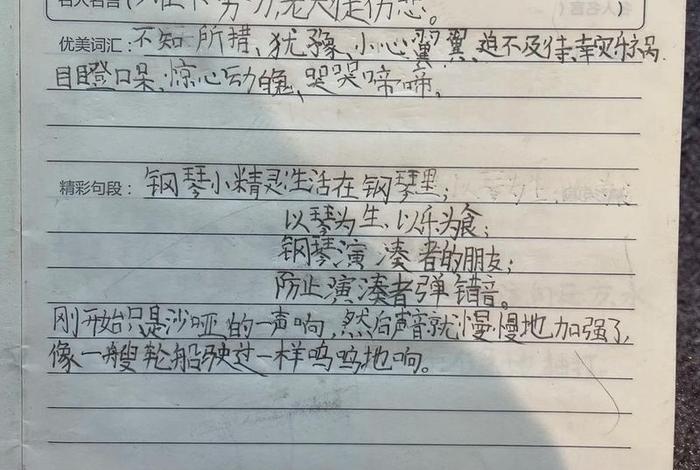 名人名言
努力,老大徒伤悲。
优美词汇:不知所措、犹豫、小心翼翼、迫不及待、幸灾乐祸
目瞪口呆、惊心动魄、哭哭啼啼、
精彩句段:钢琴小精灵生活在钢琴里;
以琴为生、以乐为食;
钢琴演凑者的朋友;
防止演凑者弹错音。
刚开始只是沙哑的一声响,然后声音就慢慢地加强了,
像一艘轮船驶过一样呜呜地响。